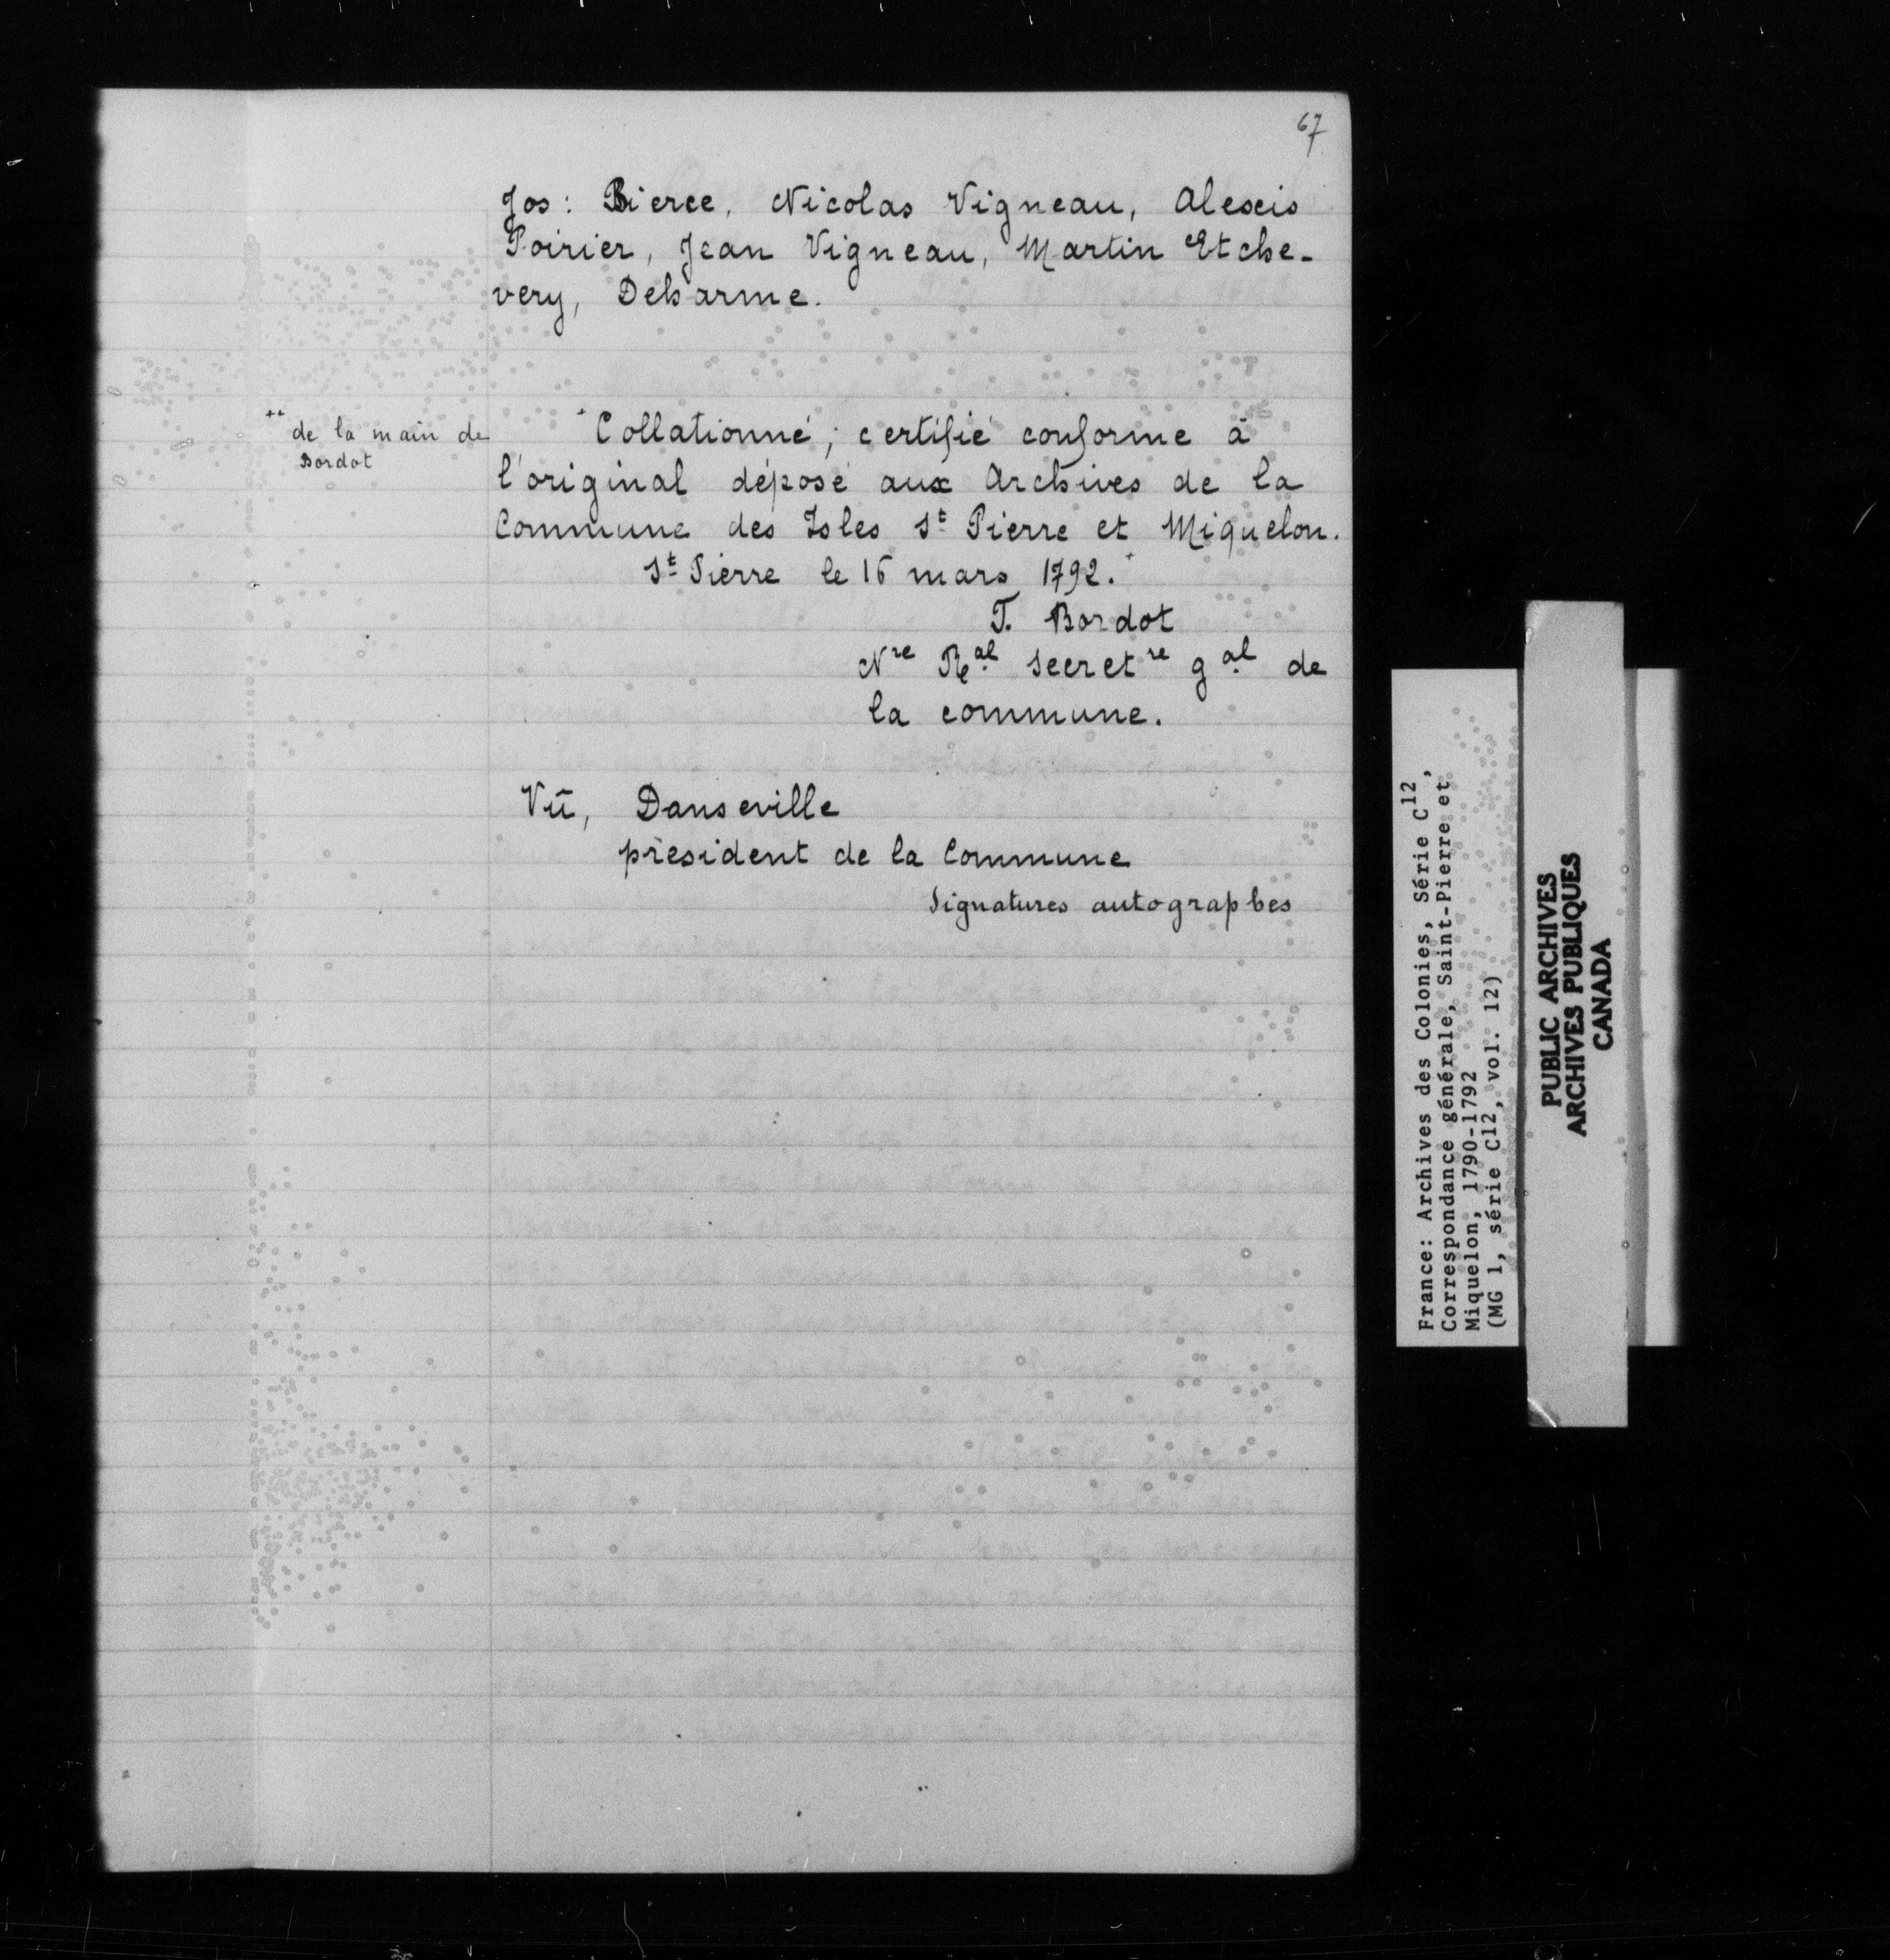 67
Jos: Bierce, Nicolas Vigneau, Alexis
Poirier, Jean Vigneau, Martin Etche-
very, Deharme.
++ de la main de
Bordot
+ Collationné, certifié conforme à
l'original déposé aux Archives de la
Commune des Isles St Pierre et Miquelon.
St Pierre le 16 mars 1792. +
T. Bordot
Nre Ral Secretre gal de
la commune.
Vû, Danseville
président de la Commune
Signatures autographes
France: Archives des Colonies, Série C12,
Correspondance générale, Saint-Pierre et
Miquelon, 1790-1792
(MG 1, série C12, vol. 12)
PUBLIC ARCHIVES
ARCHIVES PUBLIQUES
CANADA